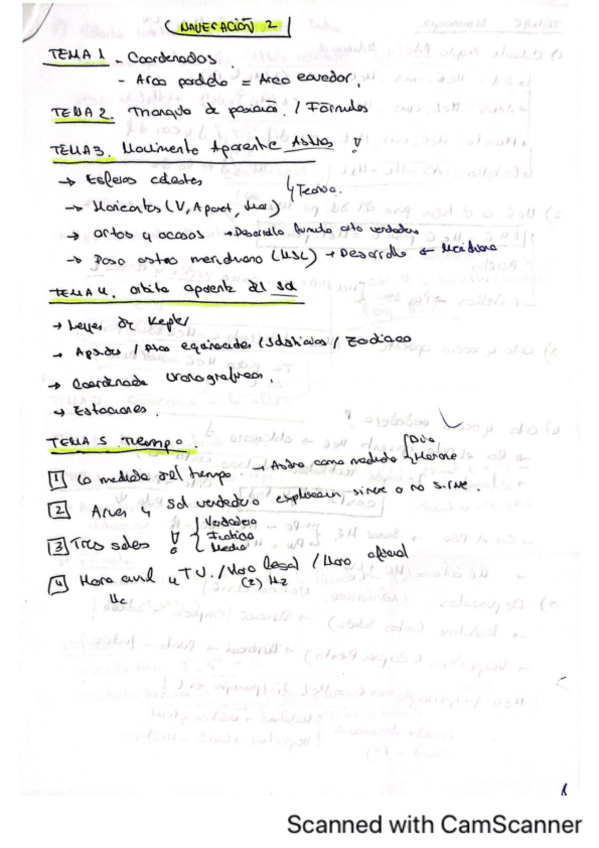 NAVEGACIÓN 2
TEMA 1 - Coordenadas.
- Arco paralelo = Arco ecuador.
TEMA 2. Triangulo de posición. / Fórmulas
TEMA 3. Movimiento Aparente Astros !
→ Esferas celestes
↳ Teoria.
→ Horizontes (V, Aparet, Mar)
→ Ortos y ocasos → Desarrollo orto verdadero
→ Paso astro meridiano (HSL) → Desarrollo Meridiano
TEMA 4. orbita aparente del sol
→ Leyes de Kepler
→ Apsides / equinociales / Solsticios / Zodiaco
→ Coordenada uranograficas.
→ Estaciones.
TEMA 5. Tiempo.
1 La medida del tiempo. → Astro como medida Dia Horario
2 Aries y Sol verdadero explicacion sirve o no sirve.
3 Tres soles ! Verdadero Ficticio Medio
4 Hora civil y TU. / Hora legal / Hora oficial
Hc (z) Hz
1
Scanned with CamScanner